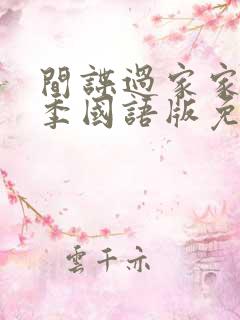 間諜過家家
季國語版免
雲千亦